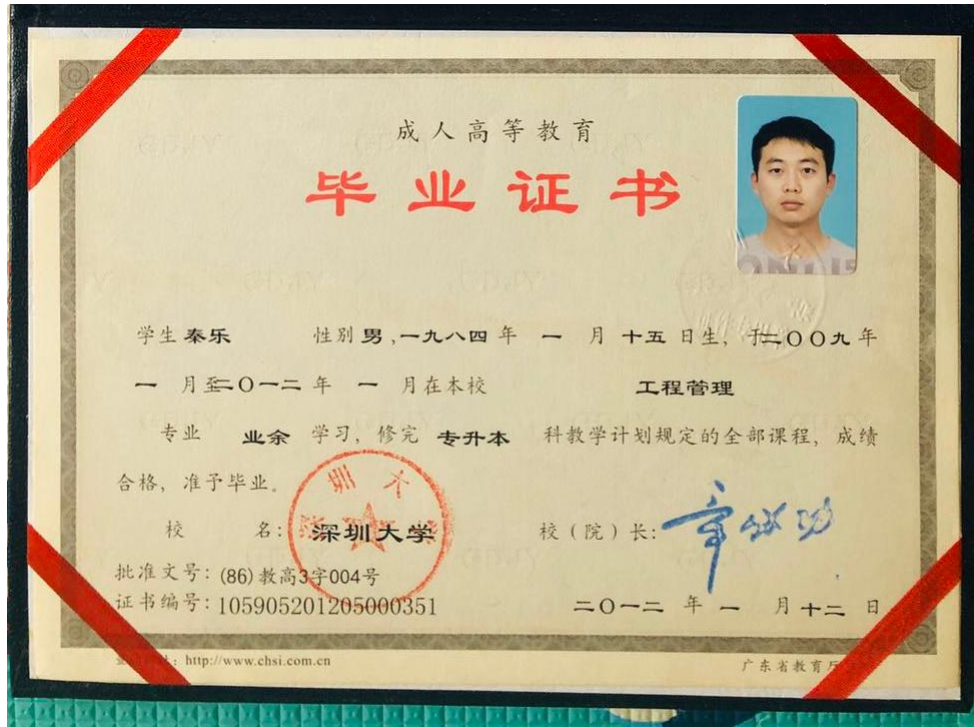 成人高等教育
毕业证书
学生 秦乐 性别 男,一九八四年 一 月 十五 日生, 于二〇〇九年
一 月至二〇一二年 一 月在本校 工程管理
专业 业余 学习, 修完 专升本 科教学计划规定的全部课程, 成绩
合格, 准予毕业。
校 名: 深圳大学 校(院)长:
批准文号: (86)教高3字004号
证书编号: 105905201205000351
二〇一二 年 一 月 十二 日
http://www.chsi.com.cn 广东省教育厅